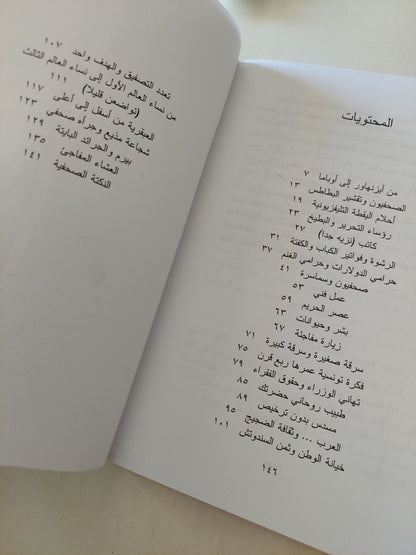 المحتويات
من أيزنهاور إلى أوباما ٧
الصحفيون وتقشير البطاطس ١٣
أحلام اليقظة التليفزيونية ١٩
رؤساء التحرير والبطيخ ٢٣
كاتب (نزيه جدا) ٢٧
الرشوة وفواتير الكباب والكفتة ٣١
حرامي الدولارات وحرامي الغنم ٣٧
صحفيون وسماسرة ٤١
عمل فني ٥٣
عصر الحريم ٥٩
بشر وحيوانات ٦٣
زيارة مفاجئة ٦٧
سرقة صغيرة وسرقة كبيرة ٧١
فكرة تونسية عمرها ربع قرن ٧٥
تهاني الوزراء وحقوق الفقراء ٧٩
طبيب روحاني حضرتك ٨٥
مسدس بدون ترخيص ٨٩
العرب ... وثقافة الضجيج ٩٥
خيانة الوطن وثمن السندوتش ١٠١
١٤٦
تعدد التصفيق والهدف واحد ١٠٧
من نساء العالم الأول إلى نساء العالم الثالث
(تواضعن قليلا) ١١١
العبقرية من أسفل إلى أعلى ١١٧
شجاعة مذيع وجرأة صحفي ١٢٣
بيرم والجرائد البايتة ١٢٩
العشاء المفاجئ ١٣٥
النكتة الصحفية ١٤١